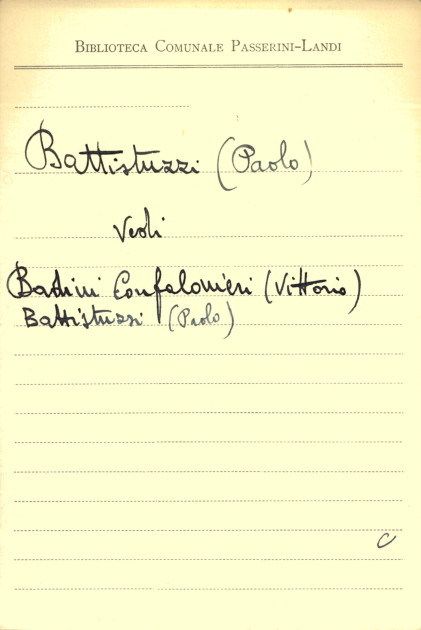 BIBLIOTECA COMUNALE PASSERINI-LANDI
Battistuzzi (Paolo)
Vedi
Badini Confalonieri (Vittorio)
Battistuzzi (Paolo)
C